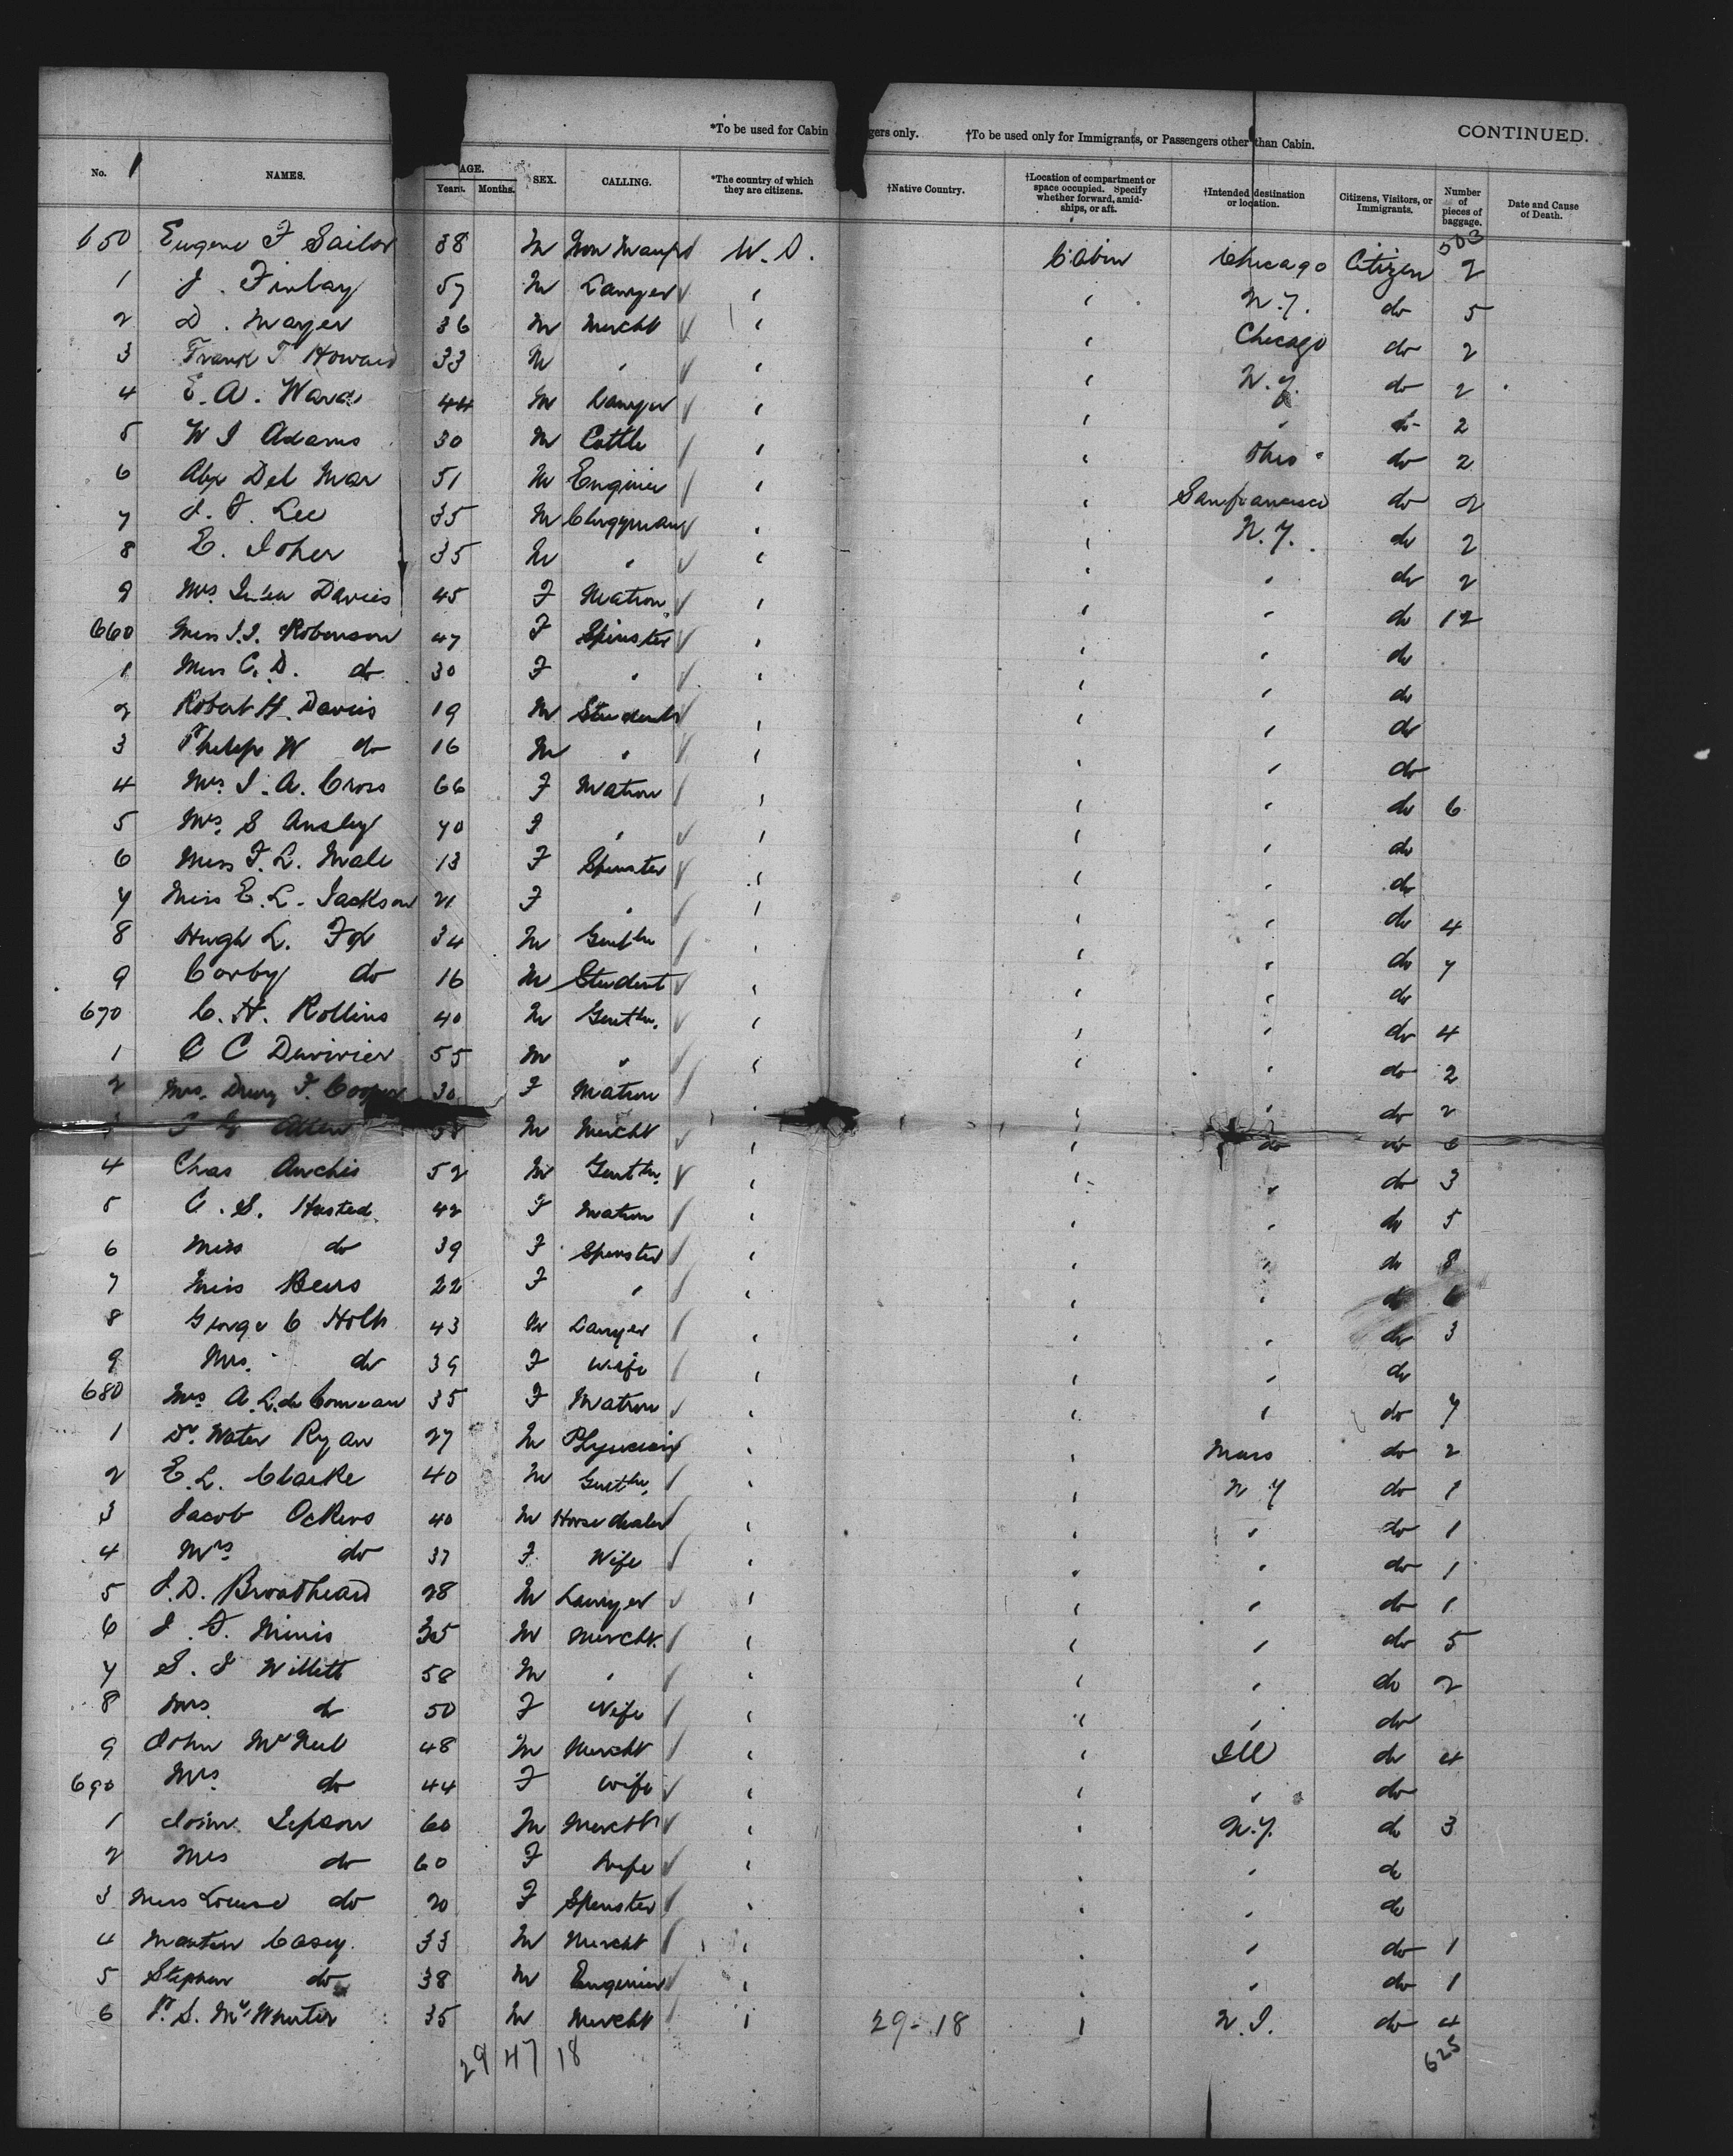 *To be used for Cabin gers only. †To be used only for Immigrants, or Passengers other than Cabin. CONTINUED.
No. 1 NAMES. AGE. Years. Months. SEX. CALLING. *The country of which they are citizens. †Native Country. †Location of compartment or space occupied. Specify whether forward, amid-ships, or aft. †Intended destination or location. Citizens, Visitors, or Immigrants. Number of pieces of baggage. Date and Cause of Death.
503
650 Eugene F Sailor 38 M U.S. Cabin Chicago Citizen 2
1 J. Finlay 57 M Lawyer " " N.Y. do 5
2 D. Mayer 36 M Mercht " " Chicago do 2
3 Frank T Howard 33 M " " " N.Y. do 2
4 E. A. Ward 44 M Lawyer " " " do 2
5 W J Adams 30 M Cattle " " Ohio do 2
6 Alex Del Mar 51 M Enginier " " Sanfrancisco do 2
7 J. F. Lee 35 M Clergyman " " N.Y. do 2
8 E. 35 M " " " " do 2
9 Mrs Davies 45 F Matron " " " do 12
660 Miss J.J. Robinson 47 F Spinster " " " do
1 Miss C. D. do 30 F " " " " do
2 Robert H. Davies 19 M Students " " " do
3 Philip W do 16 M " " " " do
4 Mrs J. A. Cross 66 F Matron " " " do 6
5 Mrs S Ansley 40 F " " " " do
6 Miss F. L. Male 13 F Spinster " " " do
7 Miss E. L. Jackson 21 F " " " " do 4
8 Hugh L. Fox 34 M Gentln " " " do 7
9 Corby do 16 M Student " " " do
670 C. H. Rollins 40 M Gentln. " " " do 4
1 C C Duvivier 55 M " " " " do 2
2 Mrs. Drury F. Cooper 30 F Matron " " " do 2
3 Allen 58 M Mercht " " do do 6
4 Chas 52 M Gentln. " " " do 3
5 C. S. Husted 42 F Matron " " " do 5
6 Miss do 39 F Spinster " " " do 8
7 Miss Beers 22 F " " " " do 6
8 George C Holt 43 M Lawyer " " " do 3
9 Mrs. do 39 F Wife " " " do
680 Mrs A. L. de 35 F Matron " " " do 7
1 Dr. Water Ryan 27 M Physician " " Mass do 2
2 E. L. Clarke 40 M Gentln. " " N Y do 1
3 Jacob Ockers 40 M Horse dealer " " " do 1
4 Mrs do 37 F Wife " " " do 1
5 J. D. Broadhead 28 M Lawyer " " " do 1
6 J. F. Minis 35 M Mercht. " " " do 5
7 S. J Willets 58 M " " " " do 2
8 Mrs do 50 F Wife " " " do
9 John McNeil 48 M Mercht " " Ill do 4
690 Mrs do 44 F Wife " " " do
1 John Jepson 60 M Mercht " " N.Y. do 3
2 Mrs do 60 F Wife " " " do
3 Miss Louise do 20 F Spinster " " " do
4 Martin Casey 33 M Mercht " " " do 1
5 Stephen do 38 M Enginier " " " do 1
6 P. S. McWhirter 35 M Mercht " " N.J. do 4
29-18
29 47 18
625